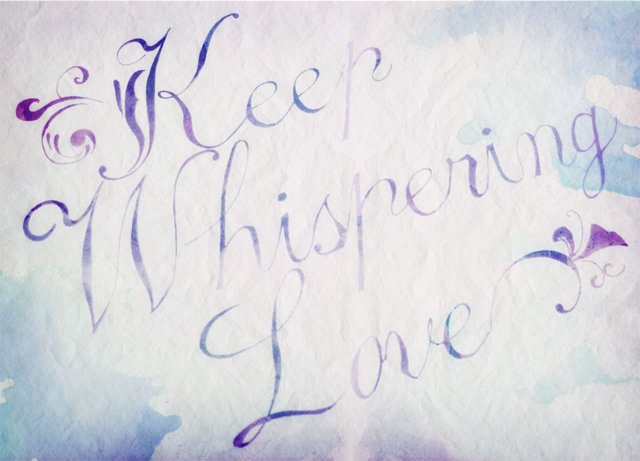 Keep
Whispering
Love